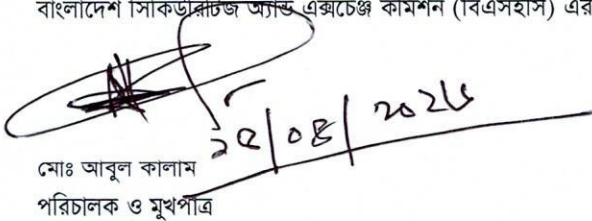 বাংলাদেশ সিকিউরিটিজ অ্যান্ড এক্সচেঞ্জ কমিশন (বিএসইসি) এর
মোঃ আবুল কালাম
পরিচালক ও মুখপাত্র